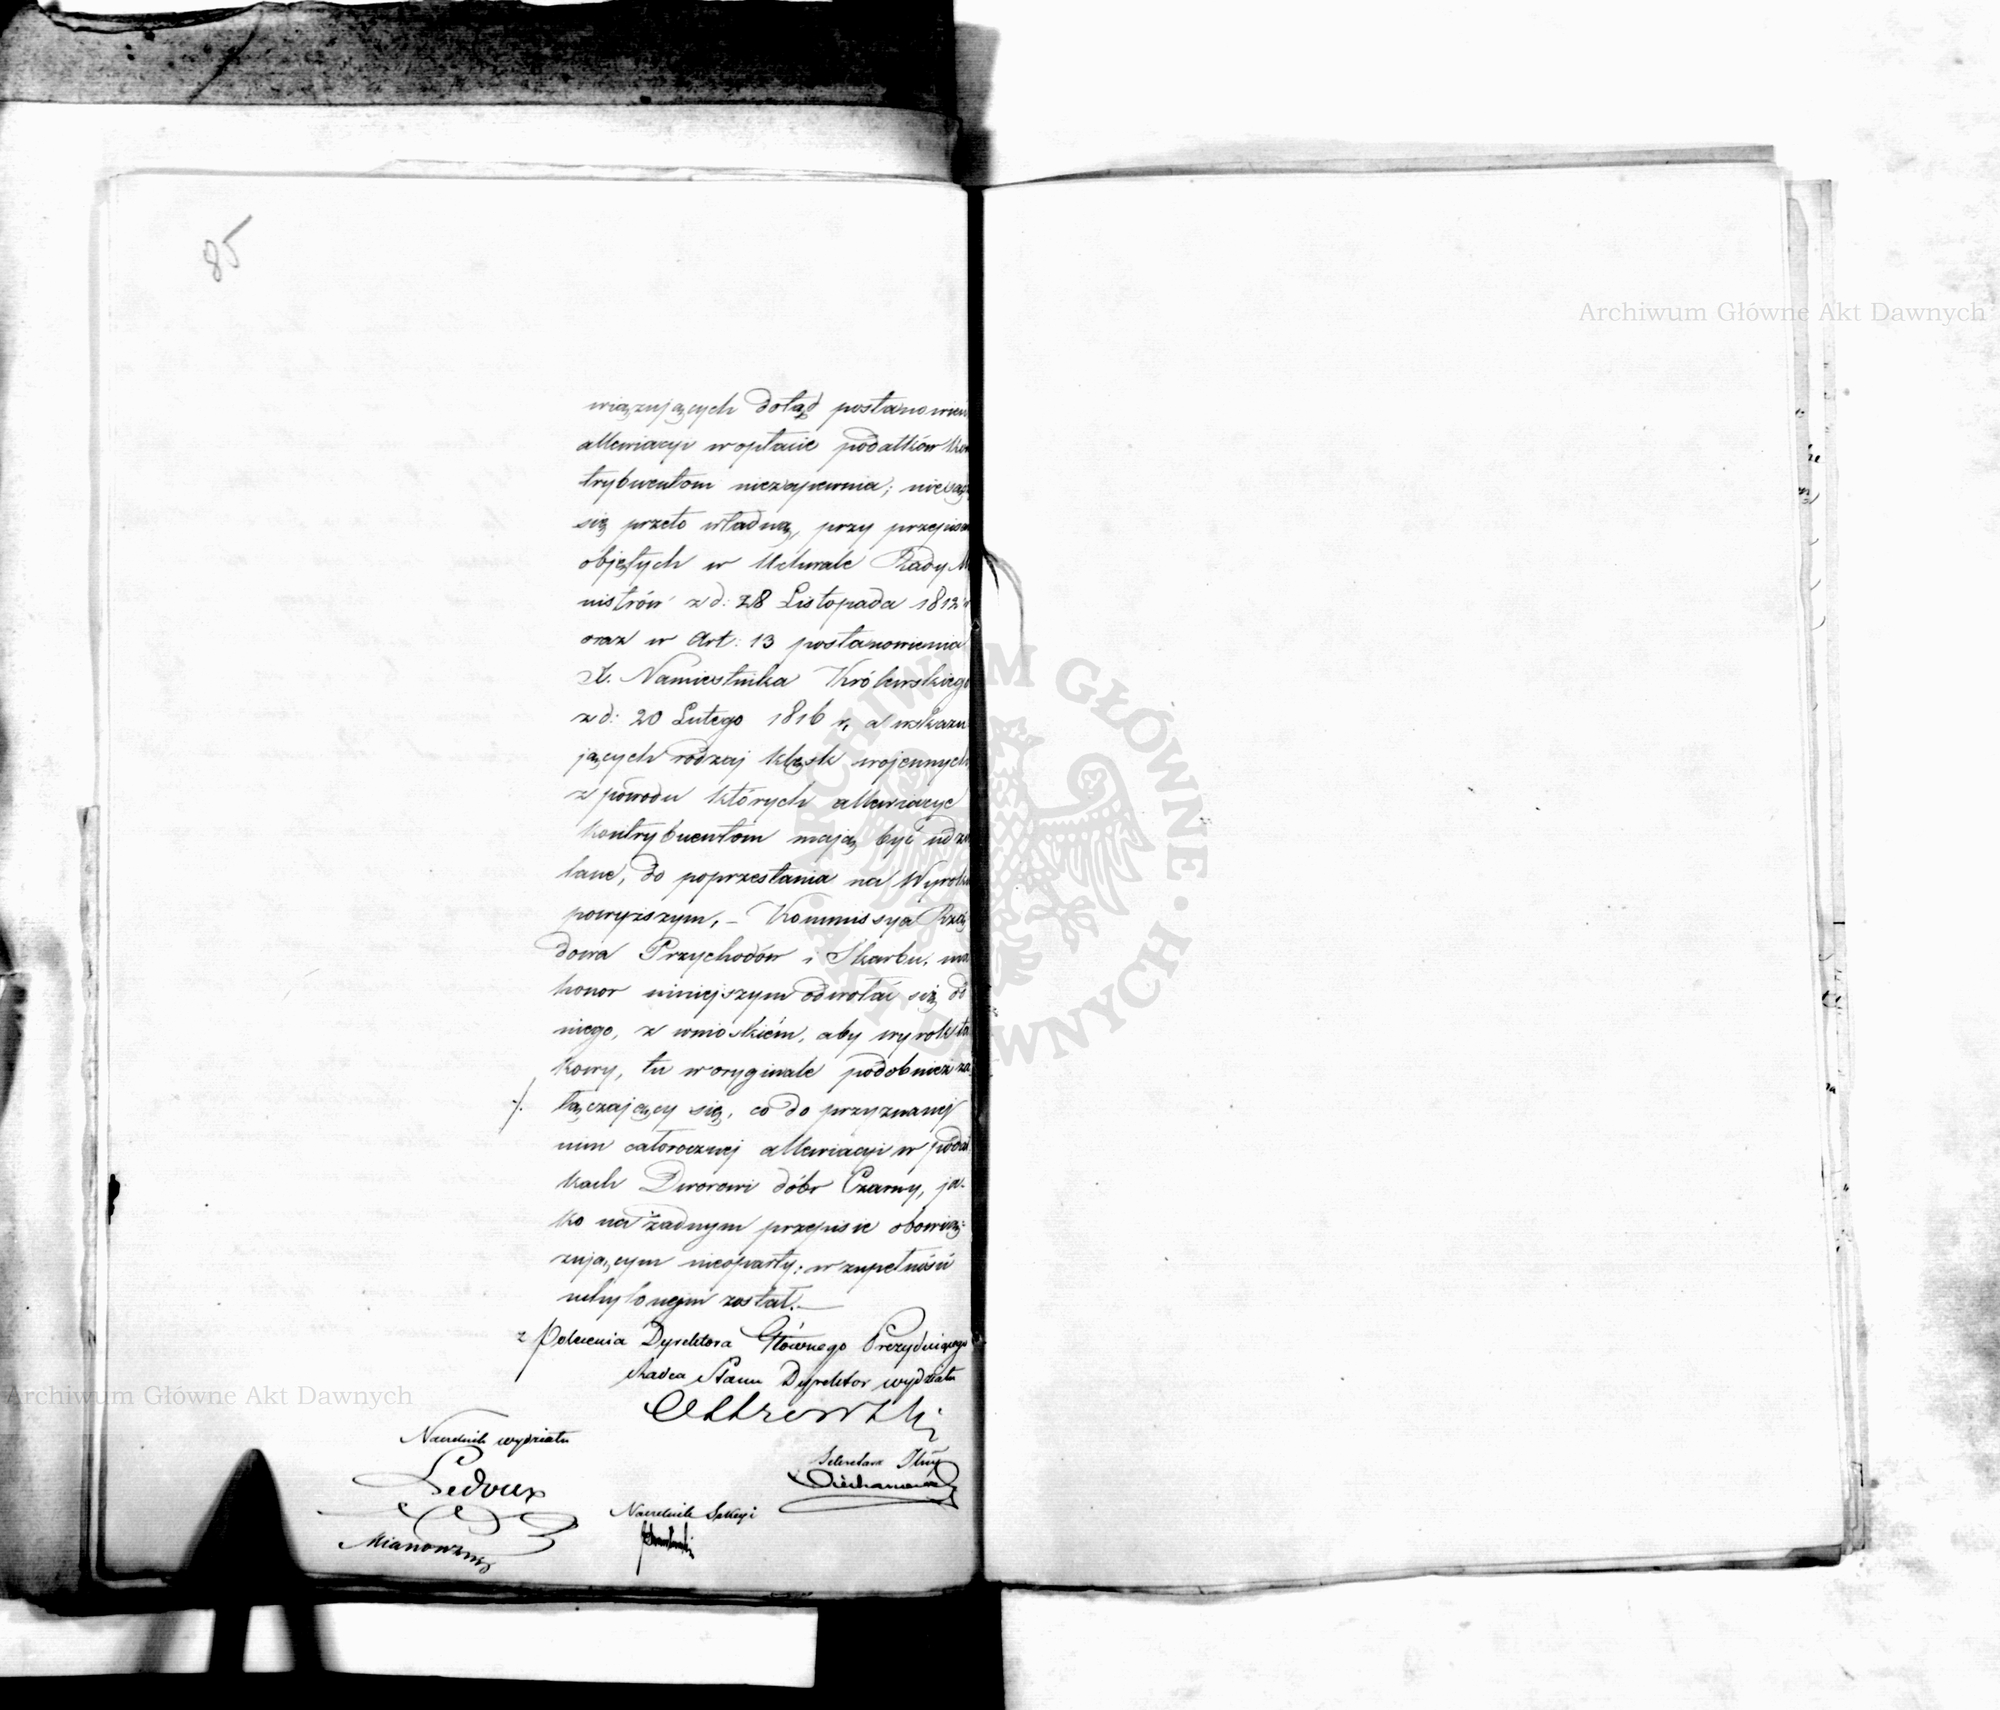 85
wiązujących dotąd postanowień
allewiacyi w opłacie podatków kon
trybuentom niezapewnia; nie
się przeto władną, przy przepisa
objętych w Uchwale Rady Mi
nistrów z d: 28 Listopada 1812 r
oraz w Art: 13 postanowienia
X. Namiestnika Królewskiego
z d: 20 Lutego 1816 r, a wskazu
jących rodzaj klęsk wojennych
z powodu których allewiacye
kontrybuentom mają być udzie
lane, do poprzestania na Wyroku
powyższym, – Kommissya Rzą
dowa Przychodów i Skarbu, ma
honor niniejszym odwołać się do
niego, z wnioskiem, aby wyrok ta
kowy, tu w oryginale podobnież za
./. łączający się, co do przyznanej
nim całorocznej allewiacyi w poda
tkach Dworowi dóbr Czarny, ja-
ko na żadnym przepisie obowią-
zującym nieoparty; w zupełności
uchylonym został. —
z Polecenia Dyrektora Głównego Prezydującego
Radca Stanu Dyrektor wydziału
Naczelnik wydziału
Ledoux
Sekretarz Jlny
Ciechanowski
Naczelnik Sekcyi
Archiwum Główne Akt Dawnych
Archiwum Główne Akt Dawnych
ARCHIWUM GŁÓWNE AKT DAWNYCH